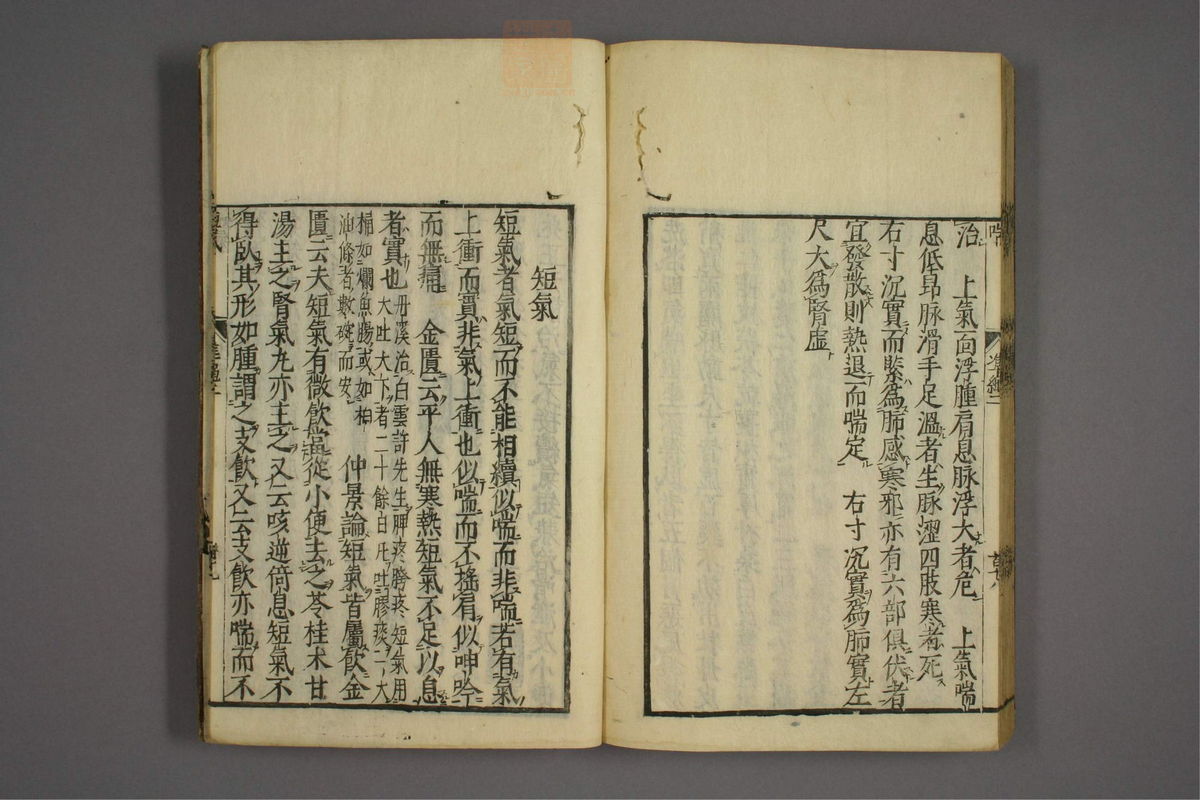 治　上氣面浮腫肩息脉浮大者危　上氣喘
息低昻脉滑手足溫者生脉澀四肢寒者死
右寸沉實而緊爲肺感寒邪亦有六部俱伏者
宜發散則熱退而喘定　右寸沉實爲肺實左
尺大爲腎虛
短氣
短氣者氣短而不能相續似喘而非喘若有氣
上衝而實非氣上衝也似喘而不搖肩似呻吟
而無痛　金匱云平人無寒熱短氣不足以息
者實也丹溪治白雲許先生脾疼胯疼短氣用
大吐大下者二十餘白凡吐膠痰一大
桶如爛魚腸或如柏
油條者數碗而安
仲景論短氣皆屬飮金
匱云夫短氣有微飮當從小便去之苓桂朮甘
湯主之腎氣丸亦主之又云咳逆倚息短氣不
得臥其形如腫謂之支飮又云支飮亦喘而不